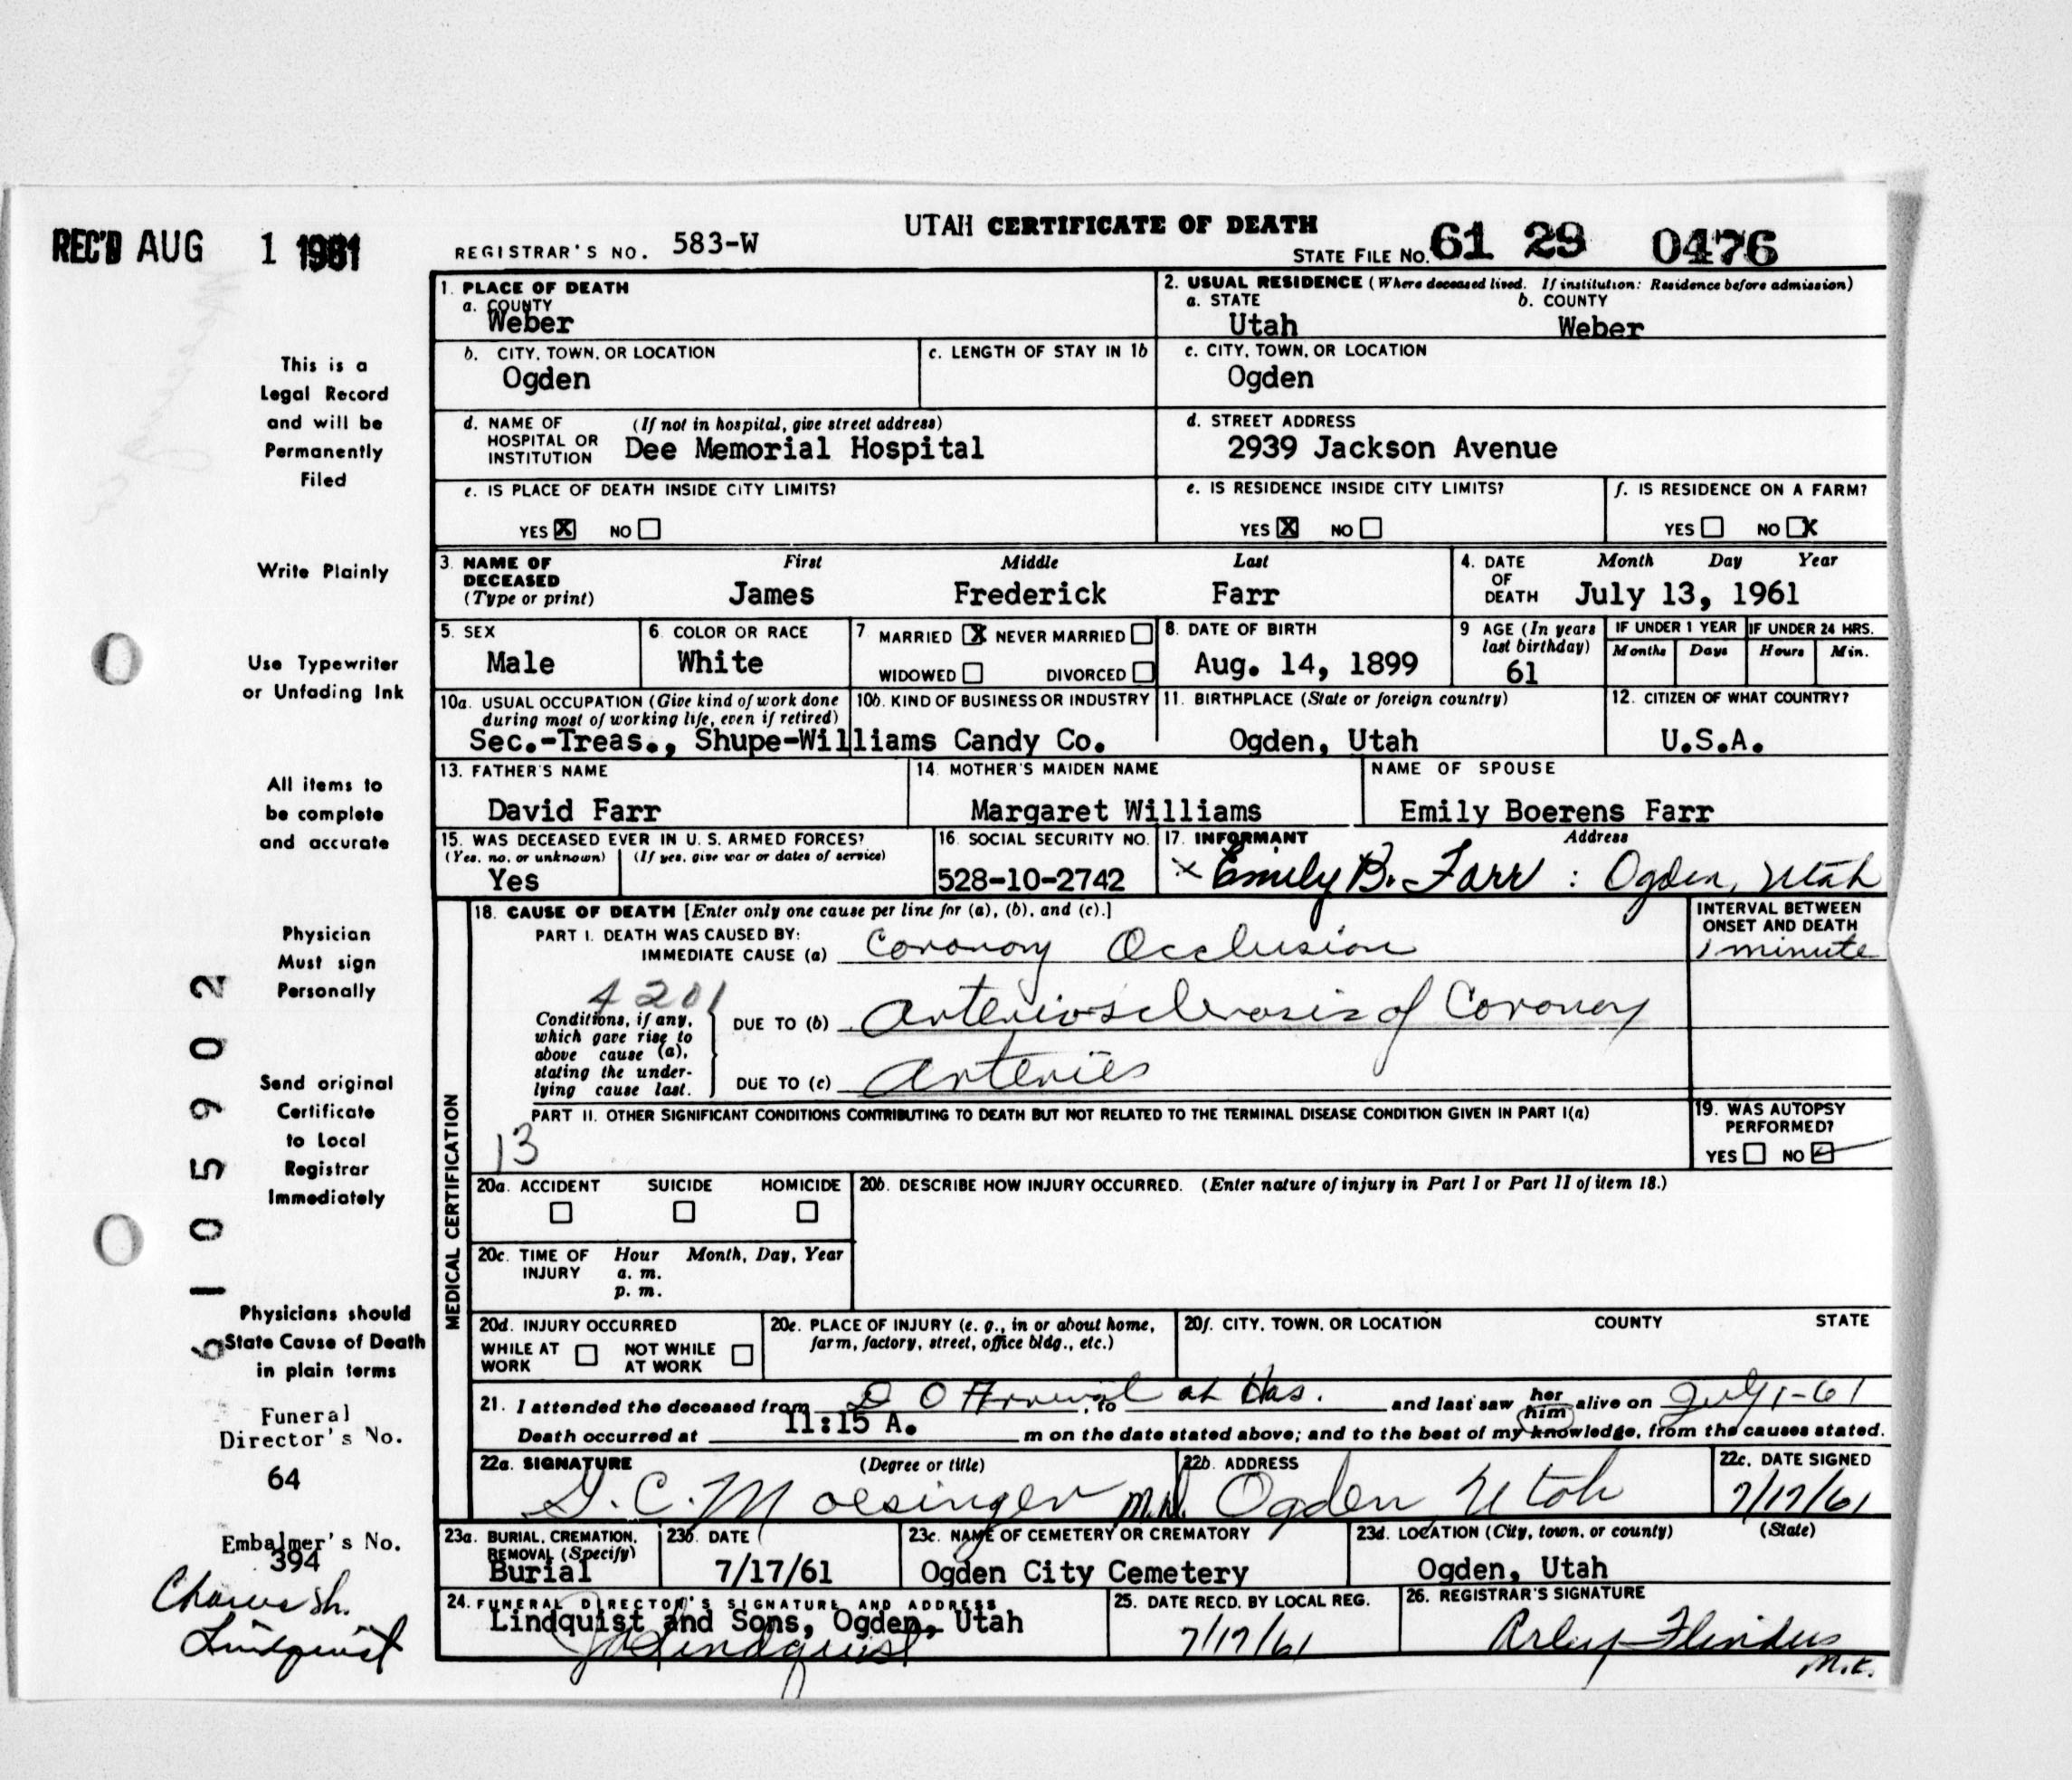 REC'D AUG 1 1961
UTAH CERTIFICATE OF DEATH
REGISTRAR'S NO. 583-W
STATE FILE NO. 61 29 0476
This is a
Legal Record
and will be
Permanently
Filed
Write Plainly
Use Typewriter
or Unfading Ink
All items to
be complete
and accurate
Physician
Must sign
Personally
Send original
Certificate
to Local
Registrar
Immediately
Physicians should
State Cause of Death
in plain terms
Funeral
Director's No.
64
Embalmer's No.
394
Lindquist
61 05902
1. PLACE OF DEATH
a. COUNTY
Weber
2. USUAL RESIDENCE (Where deceased lived. If institution: Residence before admission)
a. STATE b. COUNTY
Utah Weber
b. CITY, TOWN, OR LOCATION c. LENGTH OF STAY IN 1b
Ogden
c. CITY, TOWN, OR LOCATION
Ogden
d. NAME OF HOSPITAL OR INSTITUTION (If not in hospital, give street address)
Dee Memorial Hospital
d. STREET ADDRESS
2939 Jackson Avenue
e. IS PLACE OF DEATH INSIDE CITY LIMITS?
YES X NO
e. IS RESIDENCE INSIDE CITY LIMITS?
YES X NO
f. IS RESIDENCE ON A FARM?
YES NO X
3. NAME OF DECEASED (Type or print) First Middle Last
James Frederick Farr
4. DATE OF DEATH Month Day Year
July 13, 1961
5. SEX
Male
6. COLOR OR RACE
White
7 MARRIED X NEVER MARRIED
WIDOWED DIVORCED
8. DATE OF BIRTH
Aug. 14, 1899
9 AGE (In years last birthday)
61
IF UNDER 1 YEAR IF UNDER 24 HRS.
Months Days Hours Min.
10a. USUAL OCCUPATION (Give kind of work done during most of working life, even if retired) 10b. KIND OF BUSINESS OR INDUSTRY
Sec.-Treas., Shupe-Williams Candy Co.
11. BIRTHPLACE (State or foreign country)
Ogden, Utah
12. CITIZEN OF WHAT COUNTRY?
U.S.A.
13. FATHER'S NAME
David Farr
14. MOTHER'S MAIDEN NAME
Margaret Williams
NAME OF SPOUSE
Emily Boerens Farr
15. WAS DECEASED EVER IN U. S. ARMED FORCES?
(Yes, no, or unknown) (If yes, give war or dates of service)
Yes
16. SOCIAL SECURITY NO.
528-10-2742
17. INFORMANT Address
x Emily B. Farr : Ogden, Utah
MEDICAL CERTIFICATION
18. CAUSE OF DEATH [Enter only one cause per line for (a), (b), and (c).]
INTERVAL BETWEEN ONSET AND DEATH
PART I. DEATH WAS CAUSED BY:
IMMEDIATE CAUSE (a) Coronary Occlusion 1 minute
4201
Conditions, if any, which gave rise to above cause (a), stating the underlying cause last.
DUE TO (b) Arteriosclerosis of Coronary
DUE TO (c) Arteries
PART II. OTHER SIGNIFICANT CONDITIONS CONTRIBUTING TO DEATH BUT NOT RELATED TO THE TERMINAL DISEASE CONDITION GIVEN IN PART I(a)
13
19. WAS AUTOPSY PERFORMED?
YES NO
20a. ACCIDENT SUICIDE HOMICIDE
20b. DESCRIBE HOW INJURY OCCURRED. (Enter nature of injury in Part I or Part II of item 18.)
20c. TIME OF INJURY Hour Month, Day, Year
a. m.
p. m.
20d. INJURY OCCURRED
WHILE AT WORK NOT WHILE AT WORK
20e. PLACE OF INJURY (e. g., in or about home, farm, factory, street, office bldg., etc.)
20f. CITY, TOWN, OR LOCATION COUNTY STATE
21. I attended the deceased from D O Arrival, to at Hos. and last saw her him alive on July 1-61
Death occurred at 11:15 A. m on the date stated above; and to the best of my knowledge, from the causes stated.
22a. SIGNATURE (Degree or title)
G. C. Moesinger M.D.
22b. ADDRESS
Ogden Utah
22c. DATE SIGNED
7/17/61
23a. BURIAL, CREMATION, REMOVAL (Specify)
Burial
23b. DATE
7/17/61
23c. NAME OF CEMETERY OR CREMATORY
Ogden City Cemetery
23d. LOCATION (City, town, or county) (State)
Ogden, Utah
24. FUNERAL DIRECTOR'S SIGNATURE AND ADDRESS
Lindquist and Sons, Ogden, Utah
25. DATE RECD. BY LOCAL REG.
7/17/61
26. REGISTRAR'S SIGNATURE
Arley Flinders